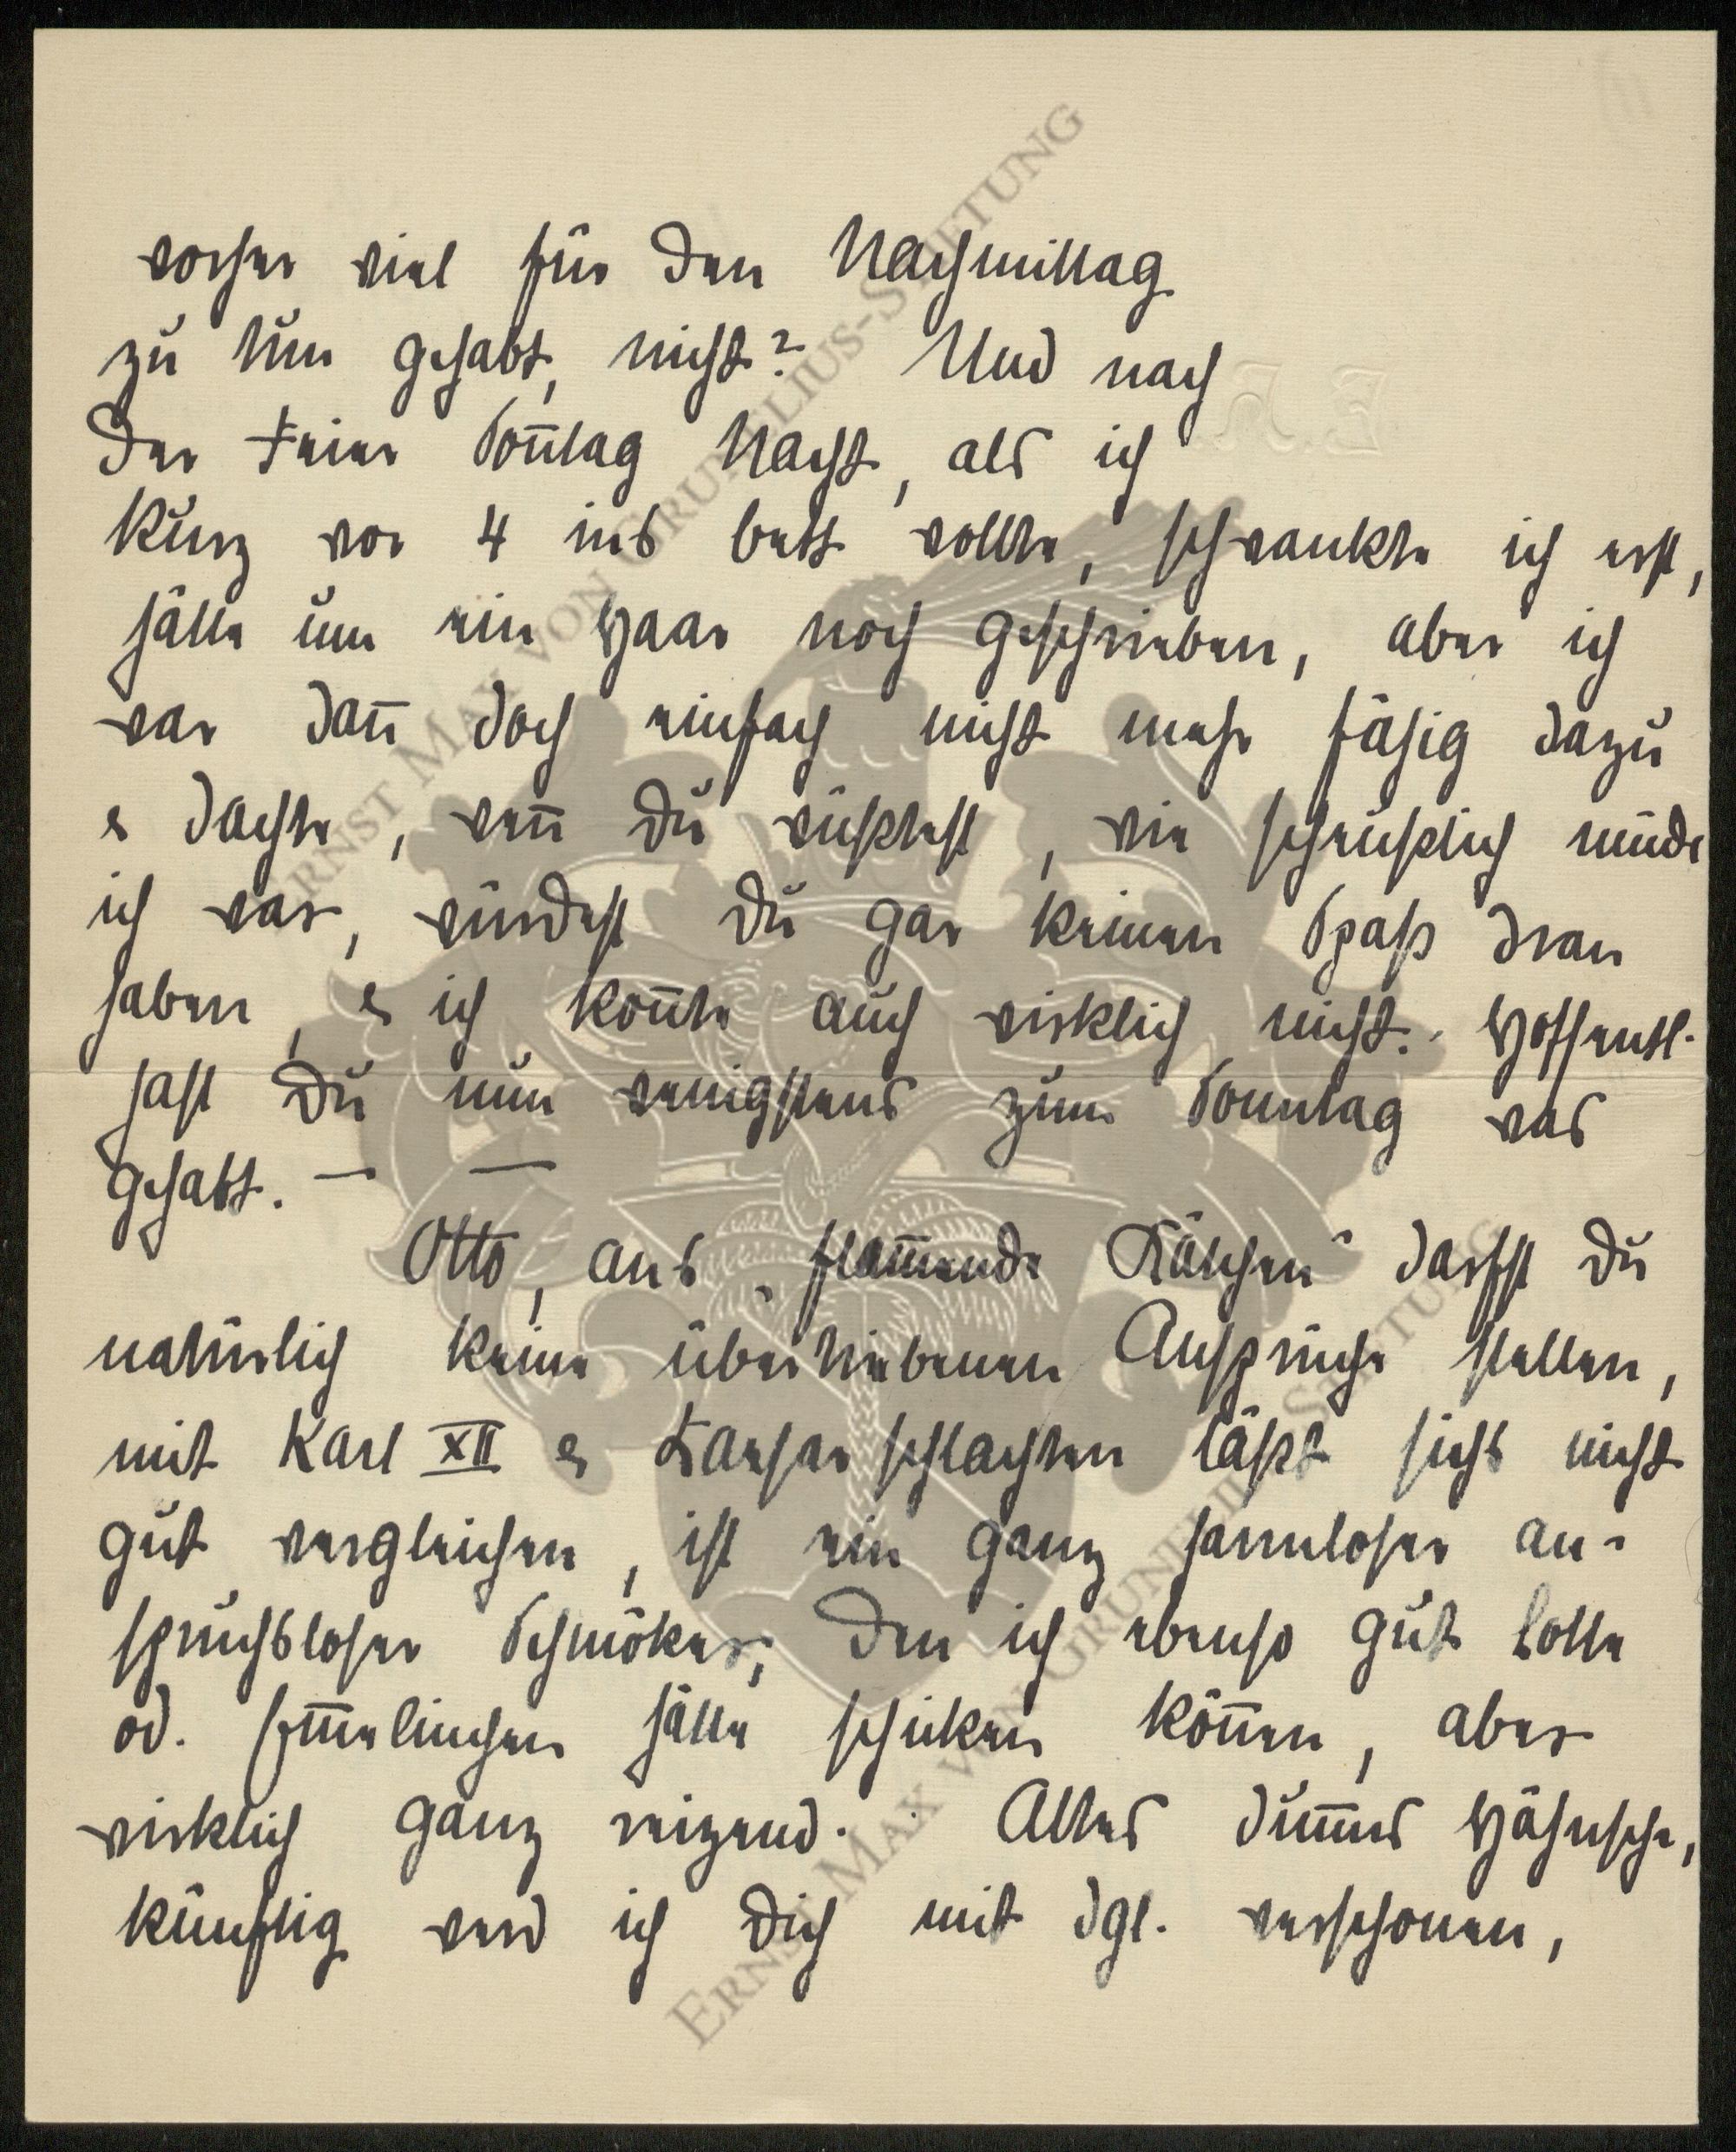 vorher viel für den Nachmittag
zu tun gehabt, nicht? Und nach
der Feier Son̄tag Nacht, als ich
kurz vor 4 ins bett wollte, schwankte ich erst,
hätte um ein Haar noch geschrieben, aber ich
war dan̄ doch einfach nicht mehr fähig dazu
& dachte, wen̄ Du wüßtest, wie scheußlich müde
ich war, würdest Du gar keinen Spaß dran
haben, & ich kon̄te auch wirklich nicht. Hoffentl.
hast Du nun wenigstens zum Sonntag was
gehabt. — —
Otto, ans „flam̄ende Käthchen“ darfst Du
natürlich keine übertriebenen Ansprüche stellen,
mit Karl XII & schlachten läßt sichs nicht
gut vergleichen, ist ein ganz harmloser an-
spruchsloser Schmöker, den ich ebenso gut Lotte
od. hätte schicken kön̄en, aber
wirklich ganz reizend. Altes dum̄es Hähnsche,
künftig werd ich Dich mit dgl. verschonen,
ERNST MAX VON GRUNELIUS-STIFTUNG
ERNST MAX VON GRUNELIUS-STIFTUNG